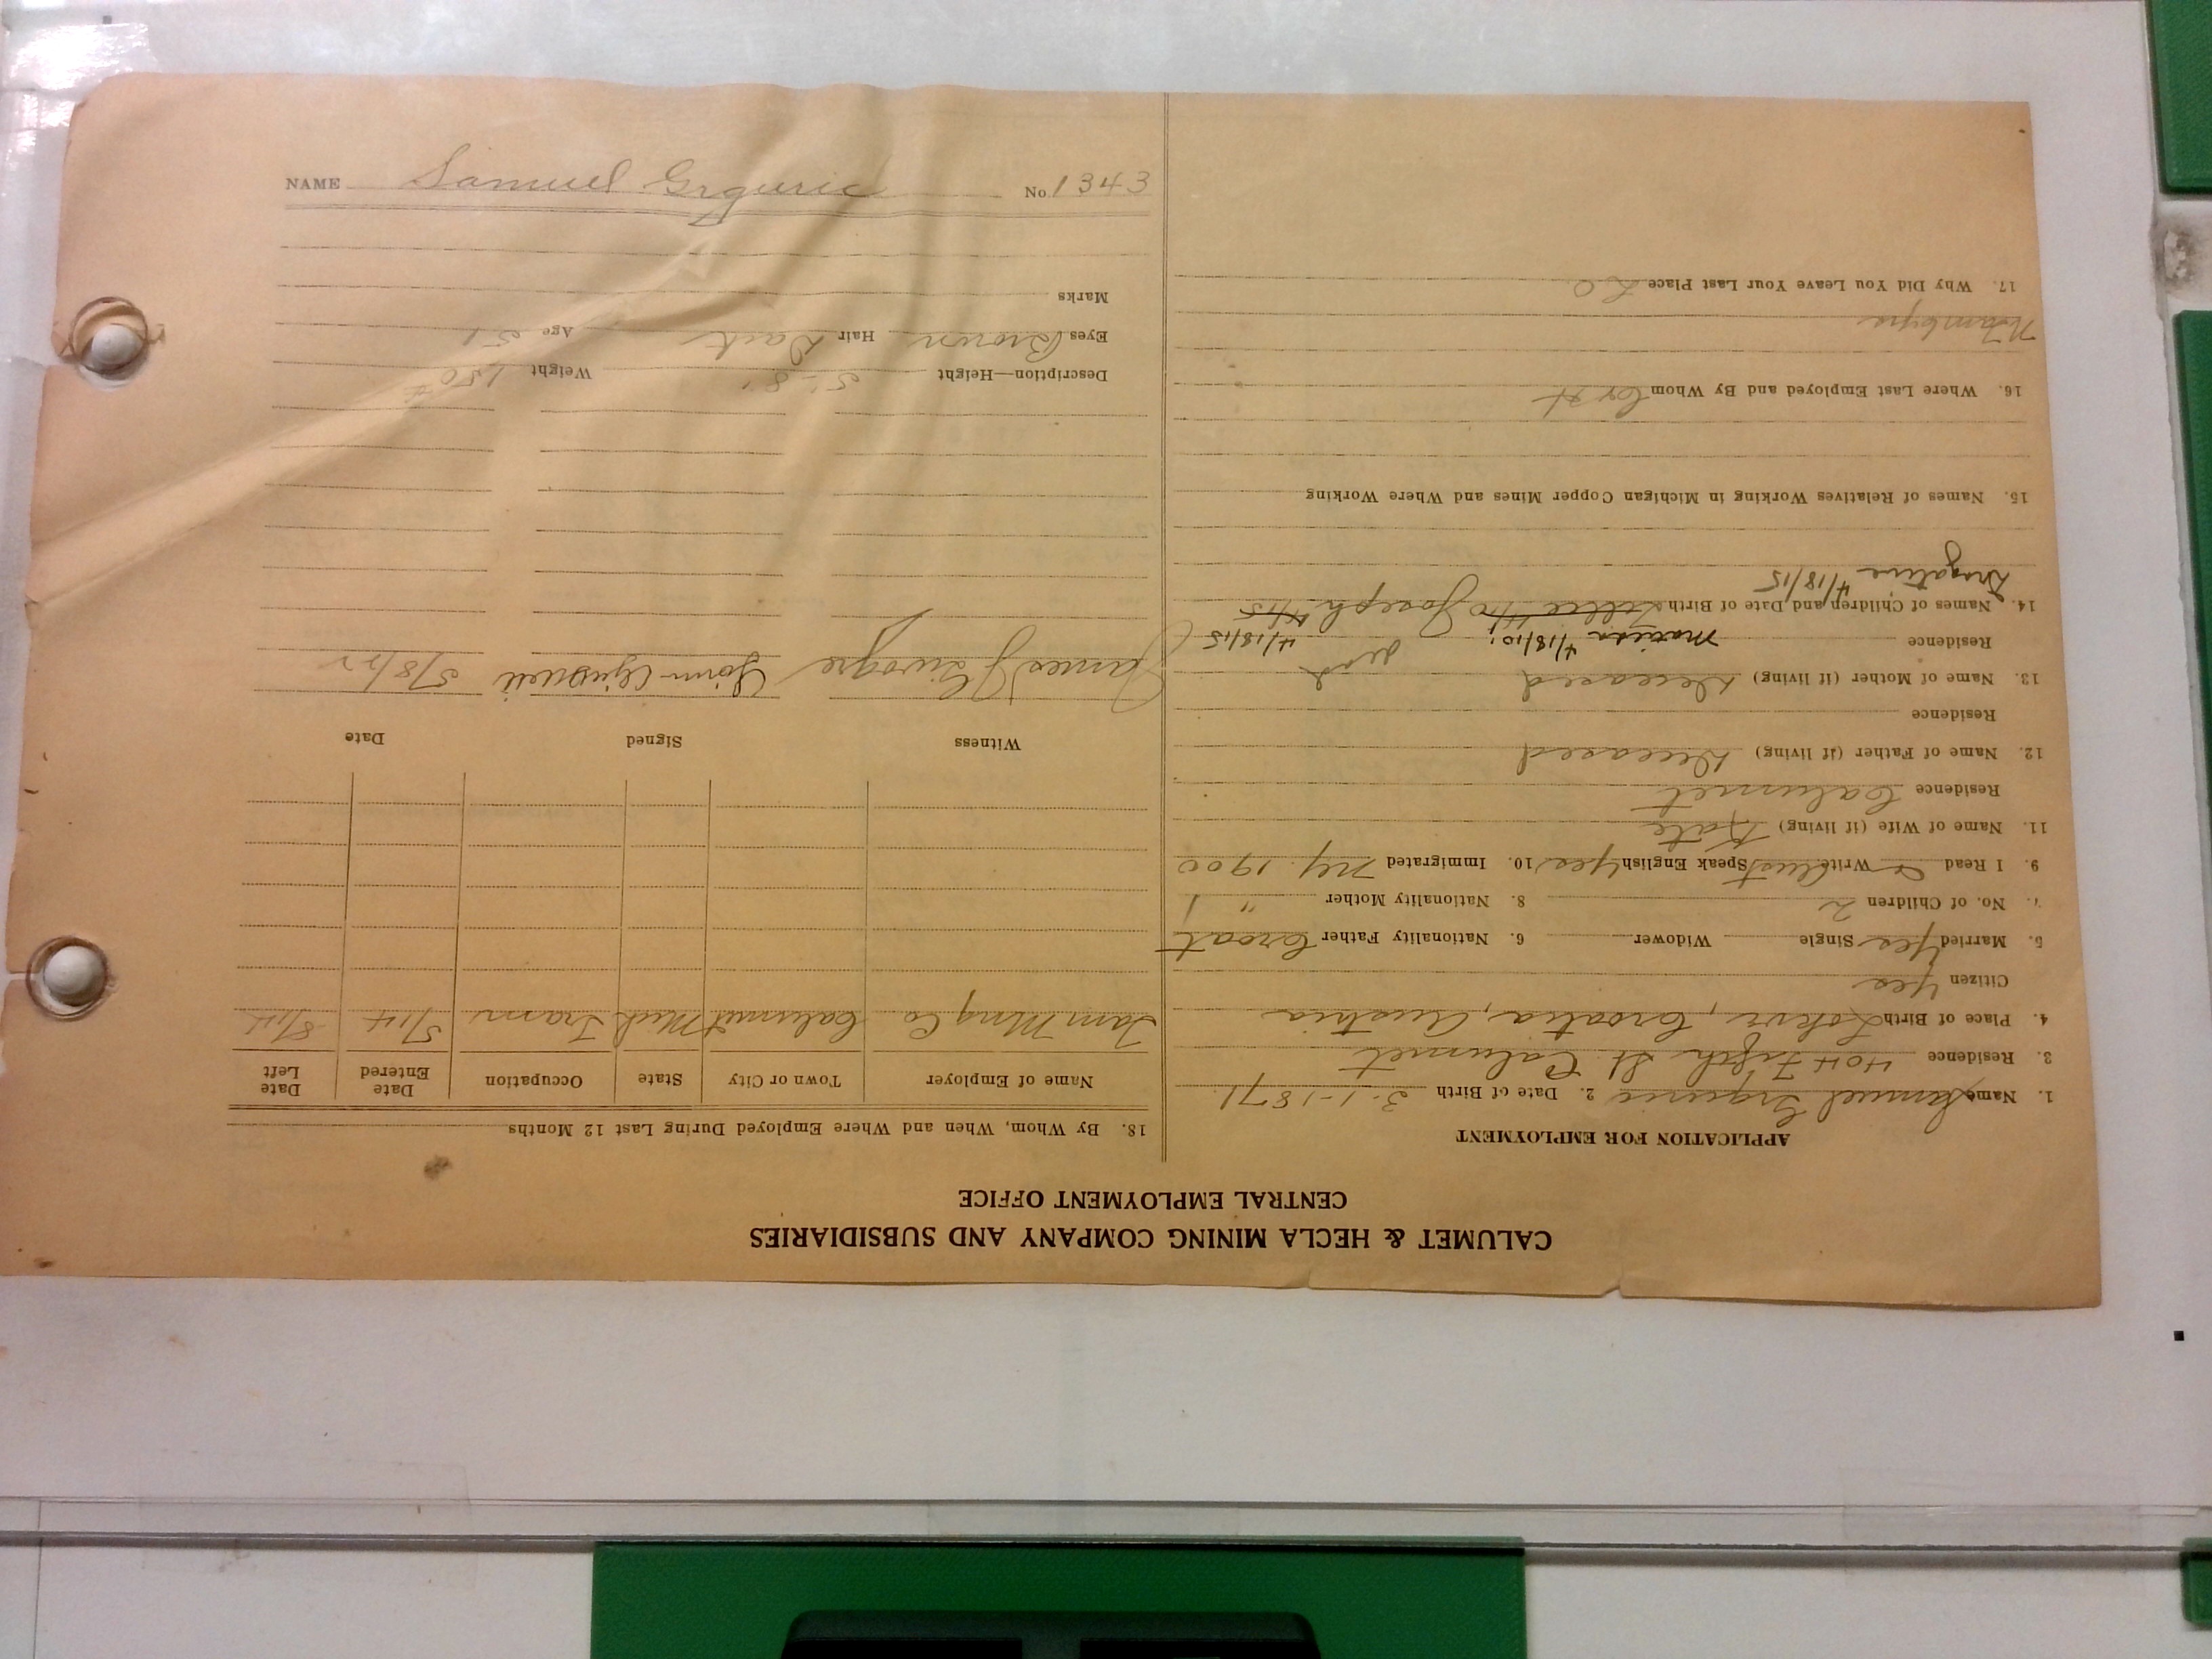 CALUMET & HECLA MINING COMPANY AND SUBSIDIARIES
CENTRAL EMPLOYMENT OFFICE
APPLICATION FOR EMPLOYMENT
1. Name Samuel Grguric 2. Date of Birth 3-1-1871
3. Residence 404 Fifth St. Calumet
4. Place of Birth Lokvi, Croatia, Austria
Citizen Yes
5. Married Yes Single Widower 6. Nationality Father Croat
7. No. of Children 2 8. Nationality Mother " 1
9. I Read Write Speak English Yes 10. Immigrated NY. 1900
11. Name of Wife (if living) Kate
Residence Calumet
12. Name of Father (if living) Deceased
Residence
13. Name of Mother (if living) Deceased
Residence 4/18/10; 4/18/15
14. Names of Children and Date of Birth 4/10 Joseph 4/15
4/18/15
15. Names of Relatives Working in Michigan Copper Mines and Where Working
16. Where Last Employed and By Whom C & H
17. Why Did You Leave Your Last Place L.O.
18. By Whom, When and Where Employed During Last 12 Months
Name of Employer Town or City State Occupation Date Entered Date Left
Tam Mng Co Calumet Mich Tram 5/14 8/14
Witness Signed Date
James J 5/8/22
Description—Height 5'-8" Weight 150#
Eyes Brown Hair Dark Age 51
Marks
NAME Samuel Grguric No. 1343